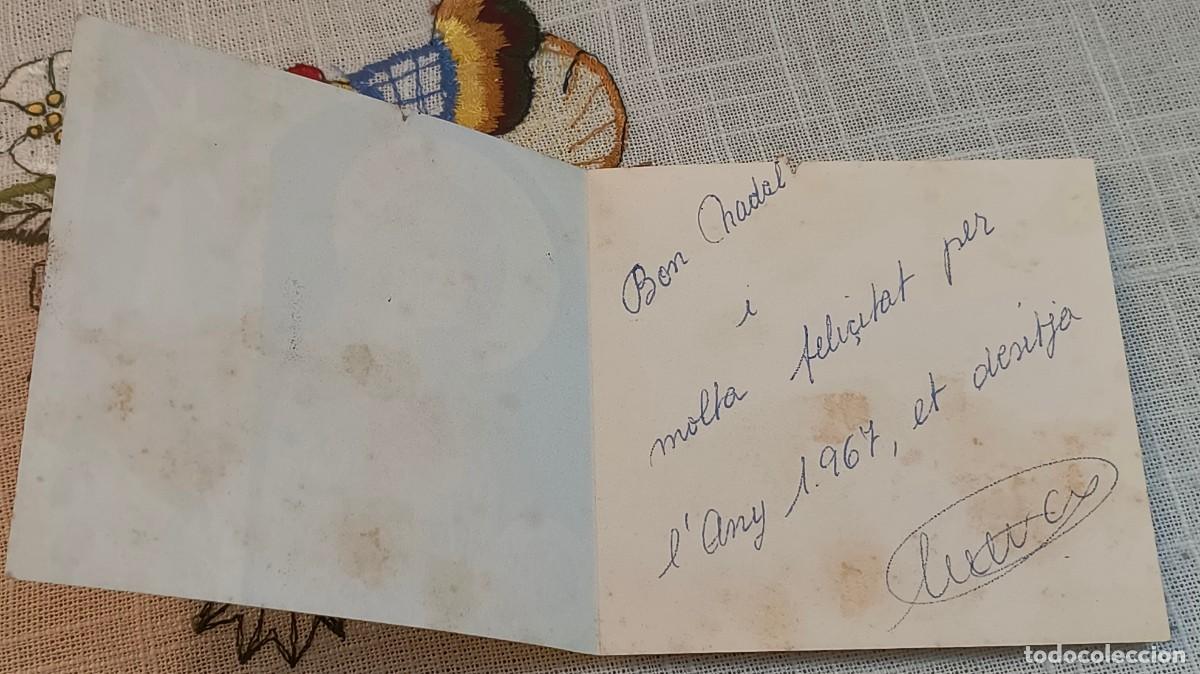 Bon Nadal
i
molta feliçitat per
l'Any 1.967, et desitja
todocoleccion